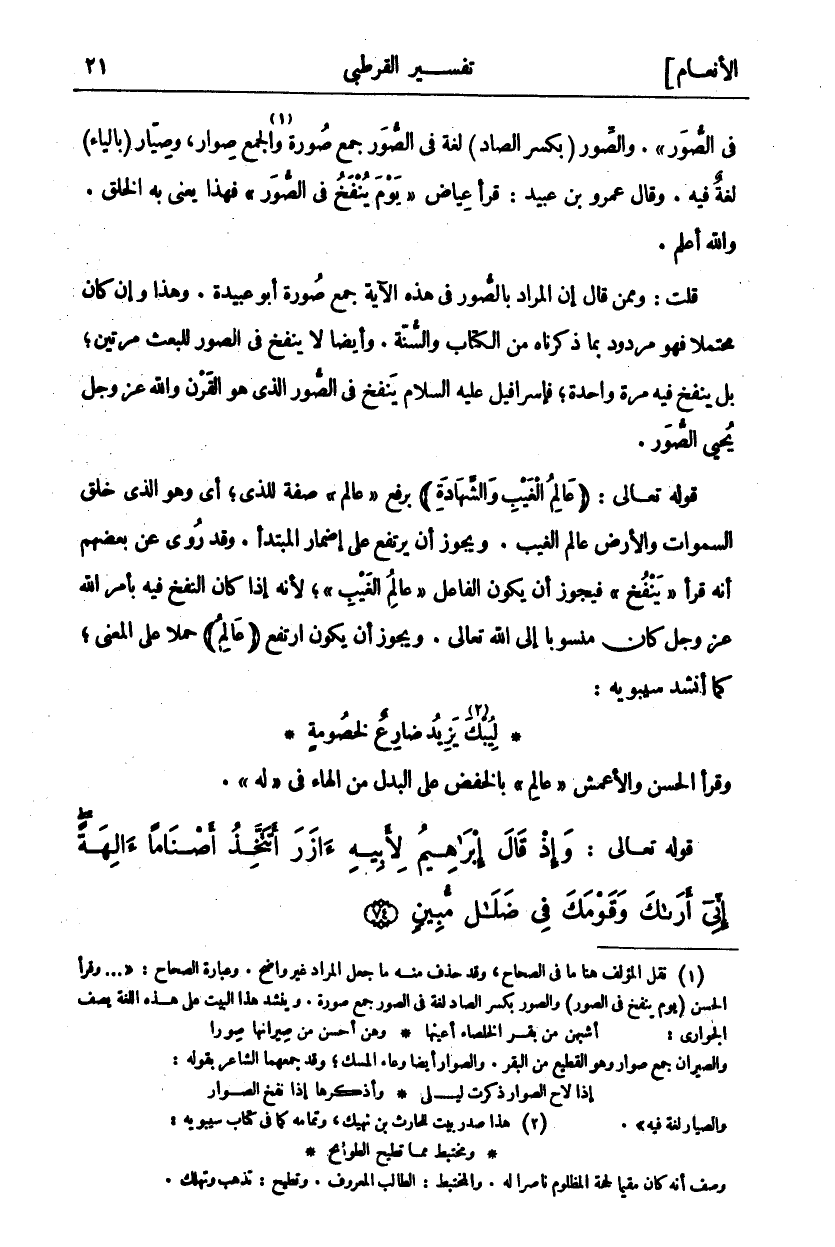 الأنعام] تفسير القرطبى ٢١
فى الصُّوَر» . والصِّور (بكسر الصاد) لغة فى الصُّوَر جمع صُورة والجمع صِوار، وصِيّار (بالياء) (١)
لغةٌ فيه . وقال عمرو بن عبيد : قرأ عِياض « يَوْمَ يُنْفَخُ فى الصُّوَر » فهذا يعنى به الخلق .
والله أعلم .
قلت : وممن قال إن المراد بالصُّور فى هذه الآية جمع صُورة أبو عبيدة . وهذا وإن كان
محتملا فهو مردود بما ذكرناه من الكتاب والسُّنّة . وأيضا لا ينفخ فى الصور للبعث مرتين؛
بل ينفخ فيه مرة واحدة؛ فإسرافيل عليه السلام يَنفخ فى الصُّور الذى هو القَرْن والله عز وجل
يُحيِي الصُّوَر .
قوله تعالى : ﴿عَالِمُ الْغَيْبِ وَالشَّهَادَةِ﴾ برفع « عالم » صفة للذى؛ أى وهو الذى خلق
السموات والأرض عالم الغيب . ويجوز أن يرتفع على إضمار المبتدأ . وقد رُوى عن بعضهم
أنه قرأ « يَنْفُخ » فيجوز أن يكون الفاعل « عالِمُ الغَيْبِ »؛ لأنه إذا كان النفخ فيه بأمر الله
عز وجل كان منسوبا إلى الله تعالى . ويجوز أن يكون ارتفع ﴿عَالِمُ﴾ حملا على المعنى؛
كما أنشد سيبويه :
* لِيُبْكَ يَزِيدُ ضارِعٌ لخصُومةٍ * (٢)
وقرأ الحسن والأعمش « عالِمِ » بالخفض على البدل من الهاء فى « له » .
قوله تعالى : وَإِذْ قَالَ إِبْرَٰهِيمُ لِأَبِيهِ ءَازَرَ أَتَتَّخِذُ أَصْنَامًا ءَالِهَةً ۖ
إِنِّىٓ أَرَىٰكَ وَقَوْمَكَ فِى ضَلَـٰلٍ مُّبِينٍ ﴿٧٤﴾
(١) نقل المؤلف هنا ما فى الصحاح، وقد حذف منه ما جعل المراد غير واضح . وعبارة الصحاح : « ... وقرأ
الحسن (يوم ينفخ فى الصور) والصور بكسر الصاد لغة فى الصور جمع صورة . وينشد هذا البيت على هذه اللغة يصف
الجوارى : أشبهن من بقر الخلصاء أعينها * وهن أحسن من صِيرانها صِورا
والصيران جمع صوار وهو القطيع من البقر . والصوار أيضا وعاء المسك؛ وقد جمعهما الشاعر بقوله :
إذا لاح الصوار ذكرت ليلى * وأذكرها إذا نفخ الصوار
والصيار لغة فيه» . (٢) هذا صدر بيت للحارث بن نهيك، وتمامه كما فى كتاب سيبويه :
* ومختبط مما تطيح الطوائح *
وصف أنه كان مقيما لحجة المظلوم ناصرا له . والمختبط : الطالب المعروف . وتطيح : تذهب وتهلك .